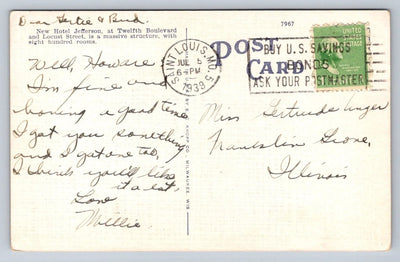 Dear Gertie & Bund.
New Hotel Jefferson, at Twelfth Boulevard
and Locust Street, is a massive structure, with
eight hundred rooms.
7967
POST
CARD
SAINT LOUIS, MO. 5
JUL 5
6-PM
1939
BUY U.S. SAVINGS
BONDS
ASK YOUR POSTMASTER
Well, Howare
I'm fine and
having a good time
I got you something
and I got one too,
I think you'd like
it a lot.
Love
Millie.
Miss Gertrude Unger
Franklin Grove,
Illinois